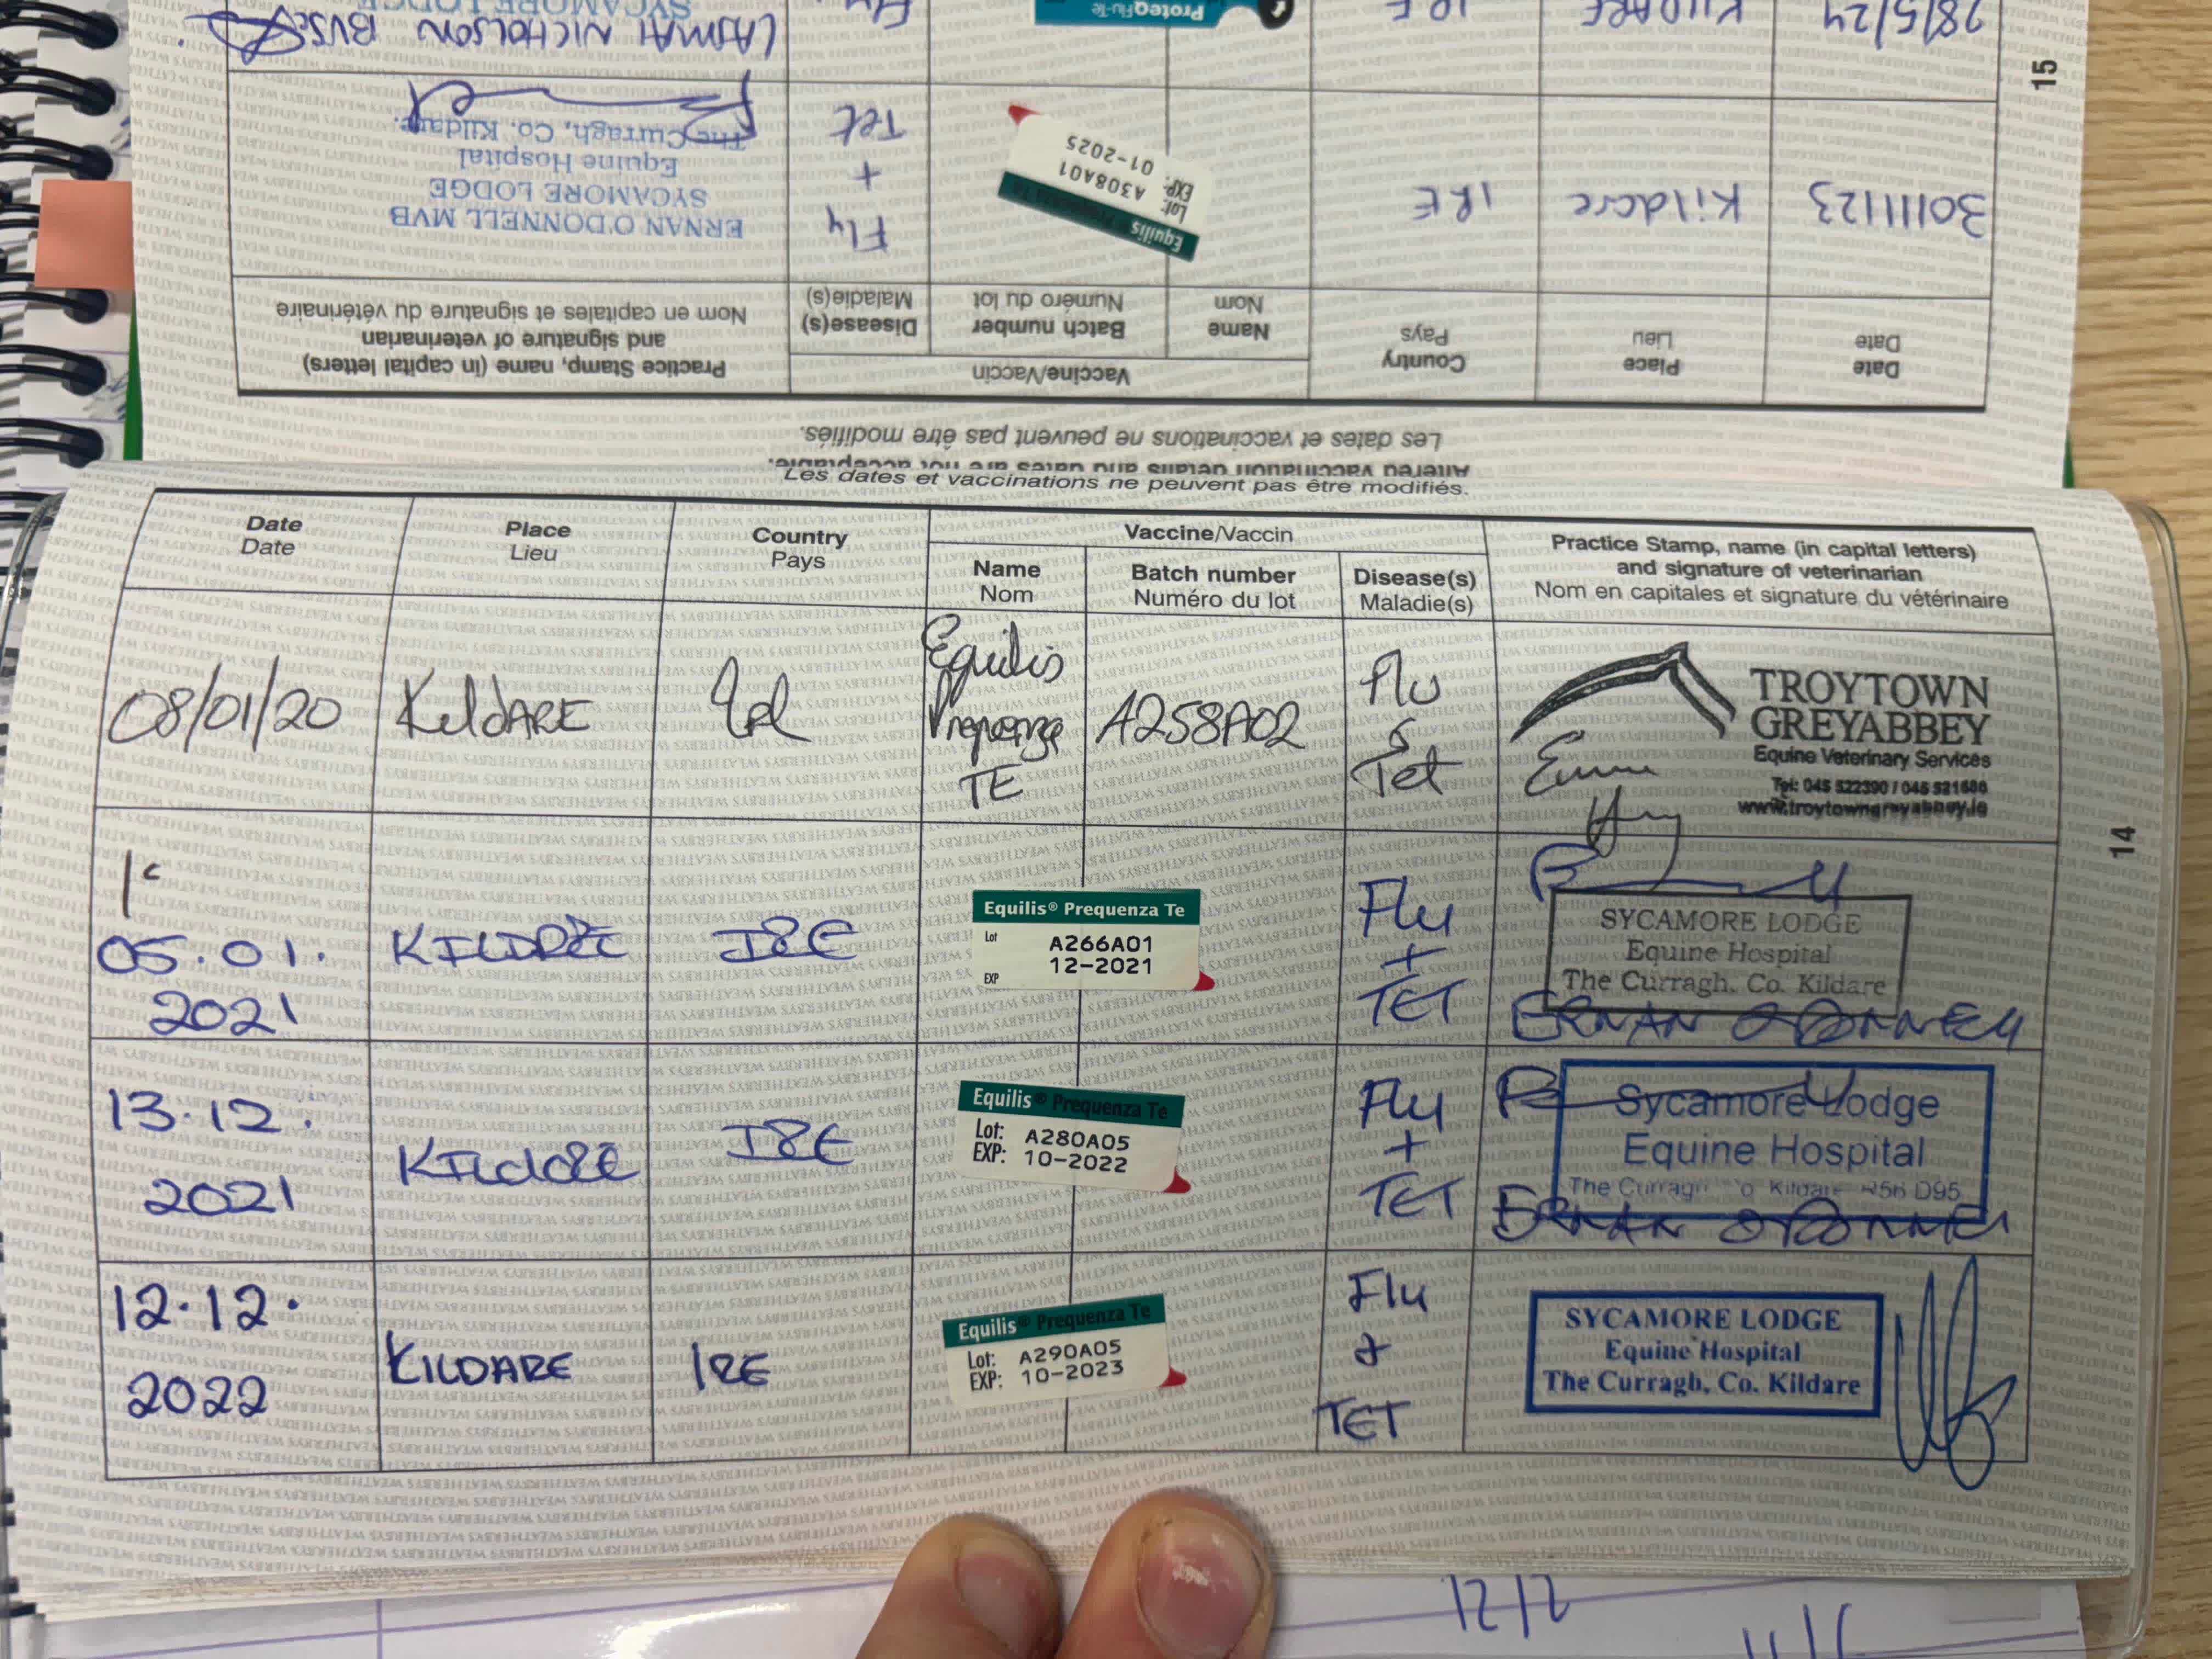 28/5/24 KILDARE IRE ProteqFlu-Te Flu LAJMAI NICHOLSON BVSc
SYCAMORE LODGE
15
30/11/23 Kildare IRE Equilis
Lot: A308A01
EXP: 01-2025
Flu
+
Tet
ERNAN O'DONNELL MVB
SYCAMORE LODGE
Equine Hospital
The Curragh, Co. Kildare.
Date
Date
Place
Lieu
Country
Pays
Vaccine/Vaccin
Name
Nom
Batch number
Numéro du lot
Disease(s)
Maladie(s)
Practice Stamp, name (in capital letters)
and signature of veterinarian
Nom en capitales et signature du vétérinaire
Altered vaccination details and dates are not acceptable.
Les dates et vaccinations ne peuvent pas être modifiés.
Les dates et vaccinations ne peuvent pas être modifiés.
Date
Date
Place
Lieu
Country
Pays
Vaccine/Vaccin
Name
Nom
Batch number
Numéro du lot
Disease(s)
Maladie(s)
Practice Stamp, name (in capital letters)
and signature of veterinarian
Nom en capitales et signature du vétérinaire
08/01/20 KildARE Irl
Equilis
Prequenza
TE
A258A02
Flu
&
Tet
TROYTOWN
GREYABBEY
Equine Veterinary Services
Tel: 045 522390 / 045 521686
www.troytowngreyabbey.ie
14
05.01.
2021
KILDARE IRE
Equilis® Prequenza Te
Lot A266A01
EXP 12-2021
Flu
+
TET
SYCAMORE LODGE
Equine Hospital
The Curragh, Co. Kildare
ERNAN O'DONNELL
13.12.
2021
KILdARE IRE
Equilis® Prequenza Te
Lot: A280A05
EXP: 10-2022
Flu
+
TET
Sycamore Lodge
Equine Hospital
The Curragh Co Kildare R56 D95
ERNAN O'DONNELL
12.12.
2022
KILDARE IRE
Equilis® Prequenza Te
Lot: A290A05
EXP: 10-2023
Flu
&
TET
SYCAMORE LODGE
Equine Hospital
The Curragh, Co. Kildare
12/2